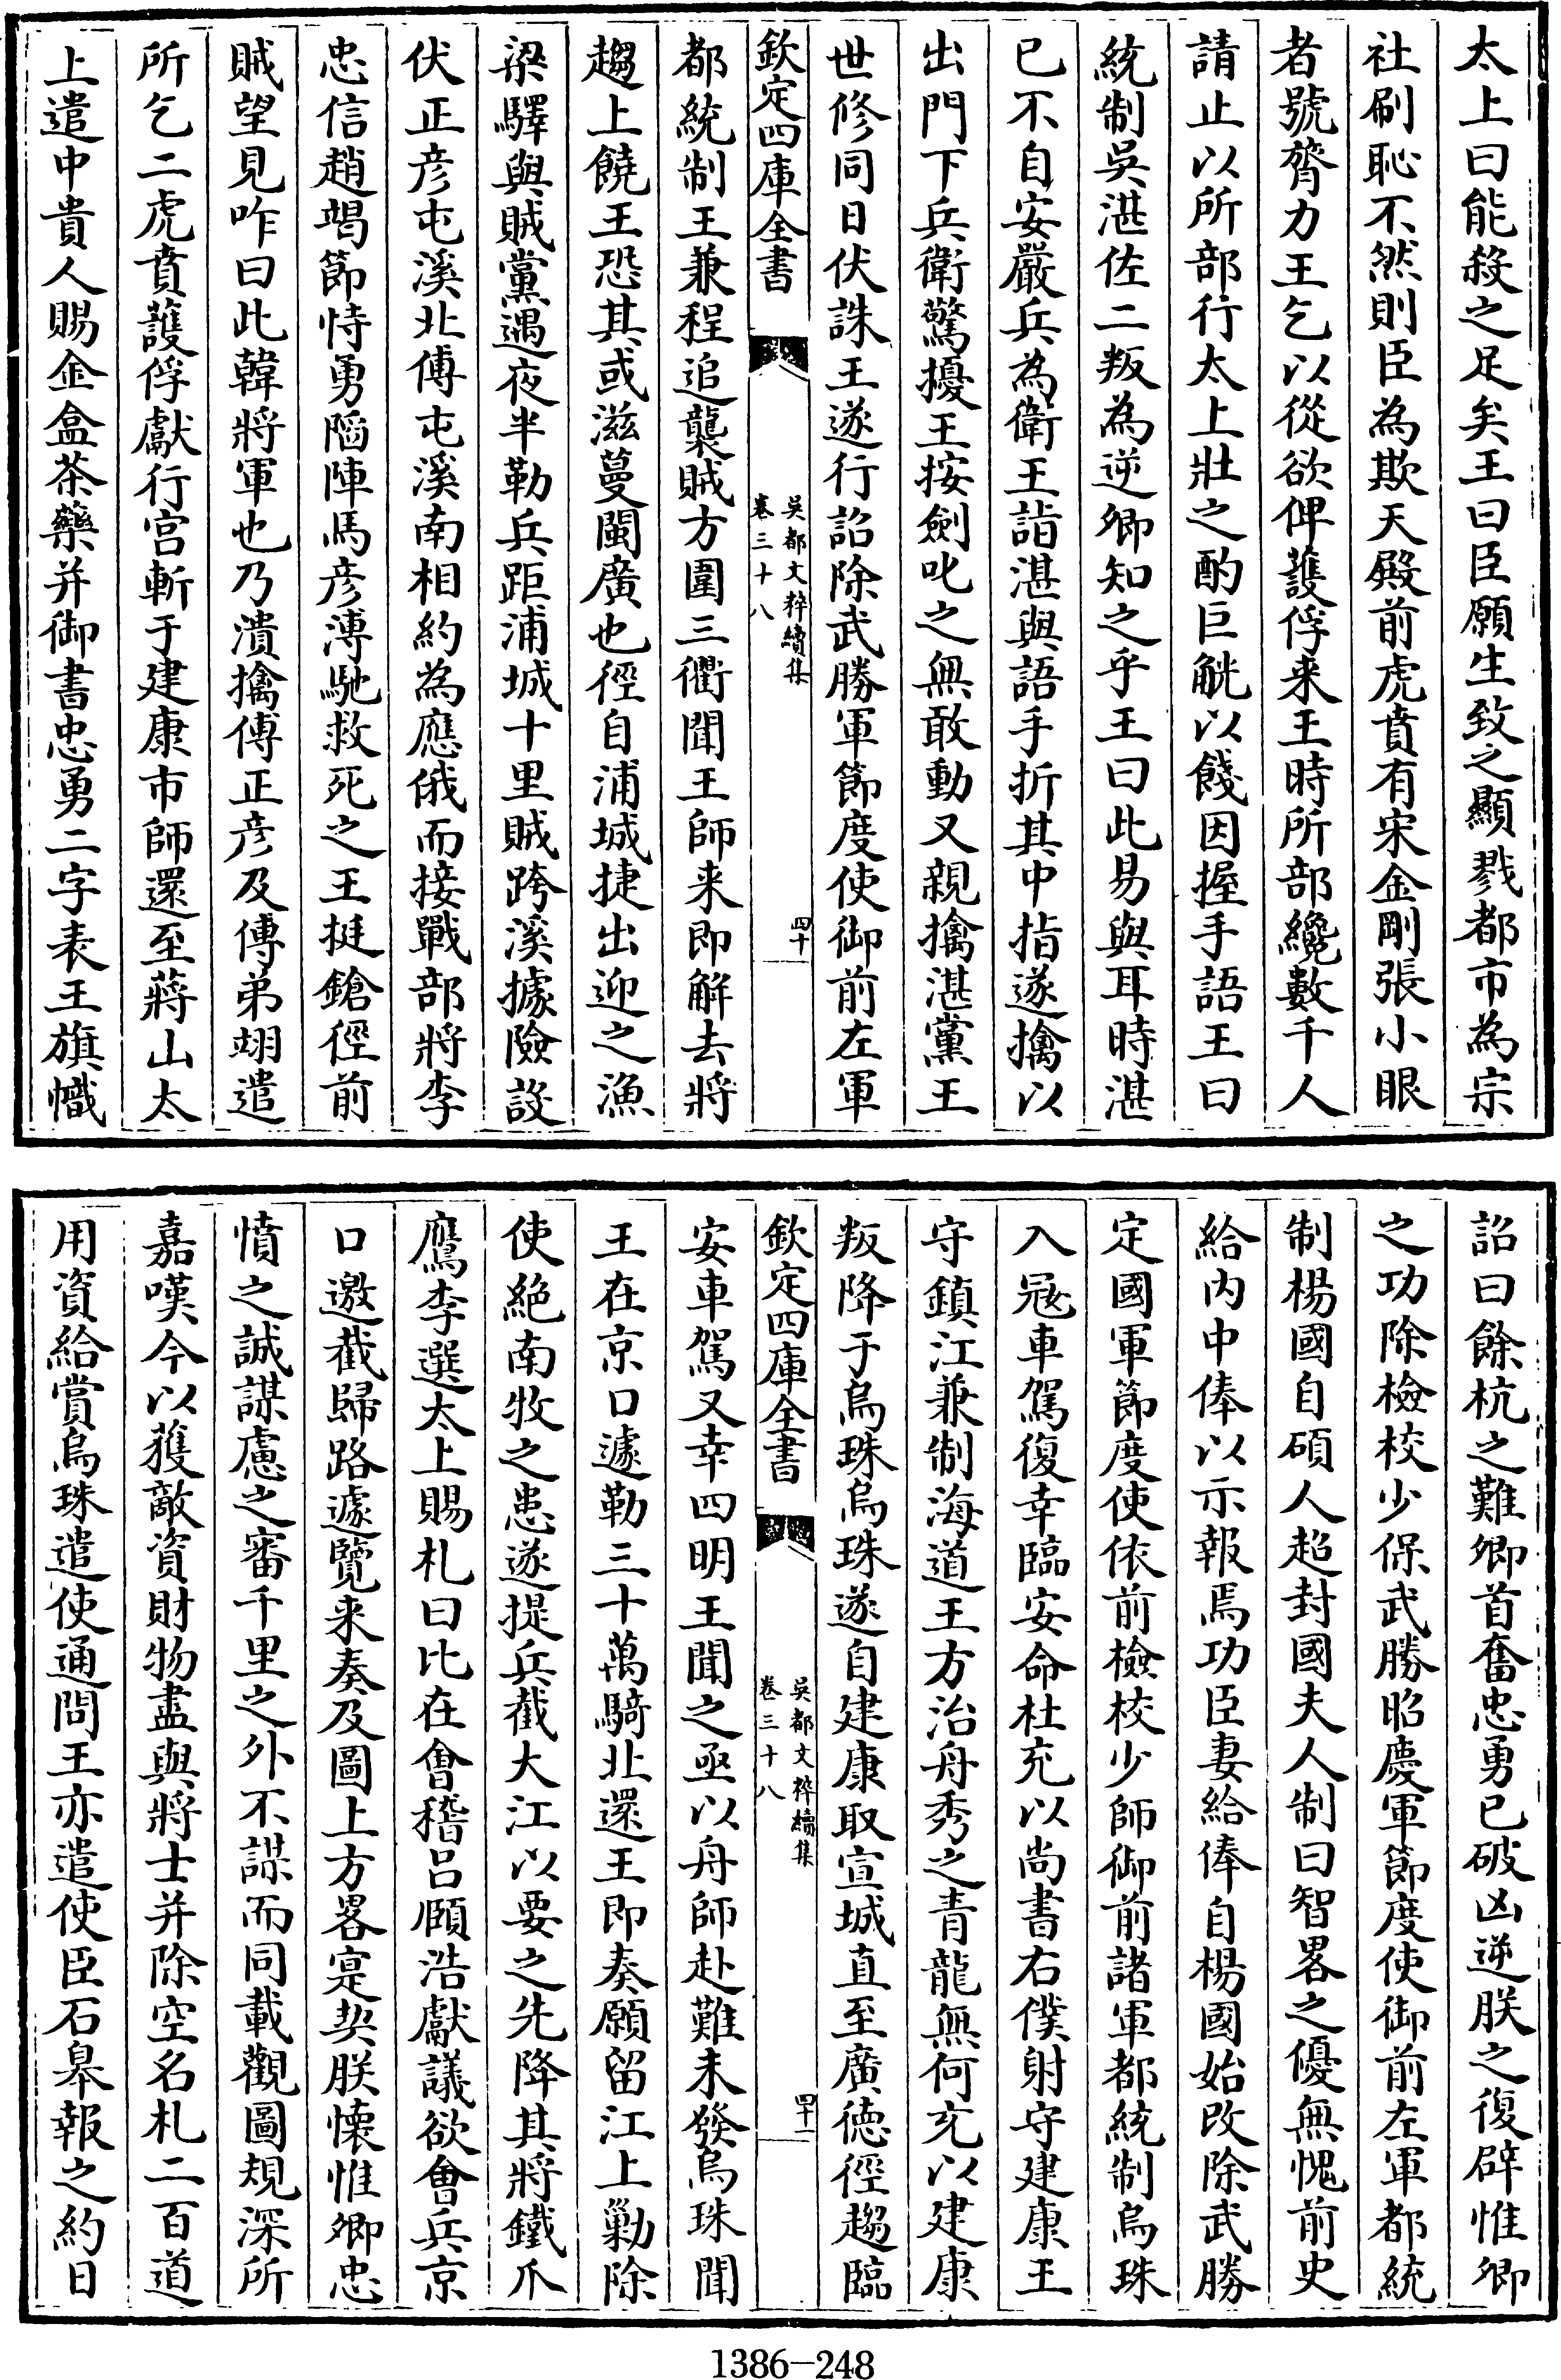 太上曰能殺之足矣王曰臣願生致之顯戮都市為宗
社刷恥不然則臣為欺天殿前虎賁有宋金剛張小眼
者號膂力王乞以從欲俾護俘来王時所部纔數千人
請止以所部行太上壯之酌巨觥以餞因握手語王曰
統制吳湛佐二叛為逆卿知之乎王曰此易與耳時湛
已不自安嚴兵為衛王詣湛與語手折其中指遂擒以
出門下兵衛驚擾王按劍叱之無敢動又親擒湛黨王
世修同日伏誅王遂行詔除武勝軍節度使御前左軍
欽定四庫全書
吳都文粹續集
卷三十八
四十
都統制王兼程追襲賊方圍三衢聞王師来即解去將
趨上饒王恐其或滋蔓閩廣也徑自浦城捷出迎之漁
梁驛與賊黨遇夜半勒兵距浦城十里賊跨溪據險設
伏正彦屯溪北傅屯溪南相約為應俄而接戰部將李
忠信趙竭節恃勇陷陣馬彦溥馳救死之王挺鎗徑前
賊望見咋曰此韓將軍也乃潰擒傅正彦及傅弟翊遣
所乞二虎賁護俘獻行宫斬于建康市師還至蔣山太
上遣中貴人賜金盒茶藥并御書忠勇二字表王旗幟
詔曰餘杭之難卿首奮忠勇已破凶逆朕之復辟惟卿
之功除檢校少保武勝昭慶軍節度使御前左軍都統
制楊國自碩人超封國夫人制曰智畧之優無愧前史
給内中俸以示報焉功臣妻給俸自楊國始改除武勝
定國軍節度使依前檢校少師御前諸軍都統制烏珠
入冦車駕復幸臨安命杜充以尚書右僕射守建康王
守鎮江兼制海道王方治舟秀之青龍無何充以建康
叛降于烏珠烏珠遂自建康取宣城直至廣德徑趨臨
欽定四庫全書
吳都文粹續集
卷三十八
四十一
安車駕又幸四明王聞之亟以舟師赴難未發烏珠聞
王在京口遽勒三十萬騎北還王即奏願留江上勦除
使絶南牧之患遂提兵截大江以要之先降其將鐵爪
鷹李選太上賜札曰比在會稽吕頤浩獻議欲會兵京
口邀截歸路遽覽来奏及圖上方畧寔契朕懐惟卿忠
憤之誠謀慮之審千里之外不謀而同載觀圖規深所
嘉嘆今以獲敵資財物盡與將士并除空名札二百道
用資給賞烏珠遣使通問王亦遣使臣石皋報之約日
1386-248